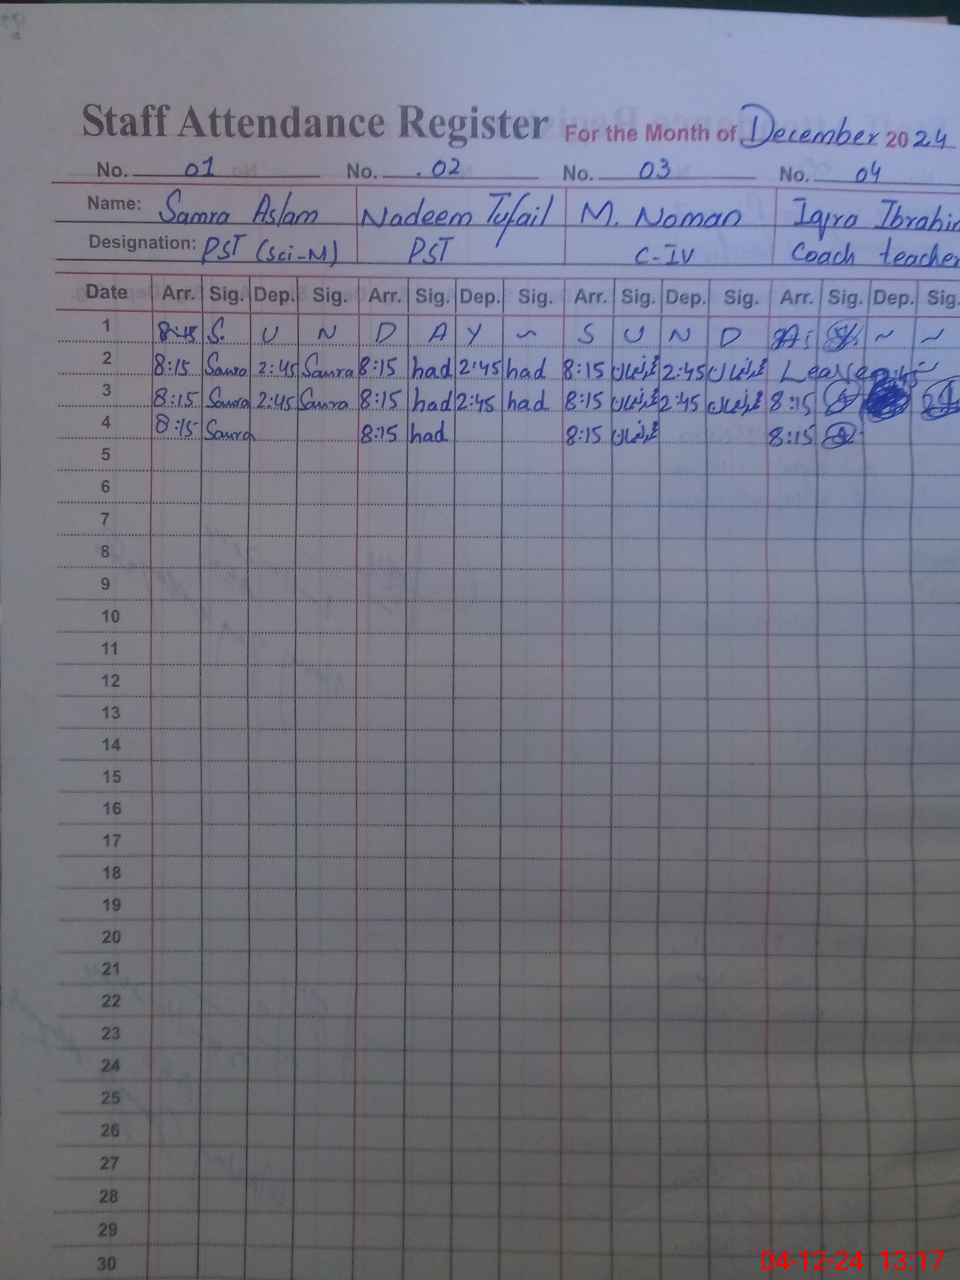 Staff Attendance Register For the Month of December 2024
No. 01 No. 02 No. 03 No. 04
Name: Samra Aslam Nadeem Tufail M. Noman Iqra Ibrahim
Designation: PST (Sci-M) PST C-IV Coach teacher
Date Arr. Sig. Dep. Sig. Arr. Sig. Dep. Sig. Arr. Sig. Dep. Sig. Arr. Sig. Dep. Sig.
1 8:15 S. U N D A Y ~ S U N D ~ ~
2 8:15 Samra 2:45 Samra 8:15 had 2:45 had 8:15 2:45 Leave
3 8:15 Samra 2:45 Samra 8:15 had 2:45 had 8:15 2:45 8:15
4 8:15 Samra 8:15 had 8:15 8:15
5
6
7
8
9
10
11
12
13
14
15
16
17
18
19
20
21
22
23
24
25
26
27
28
29
30
04-12-24 13:17